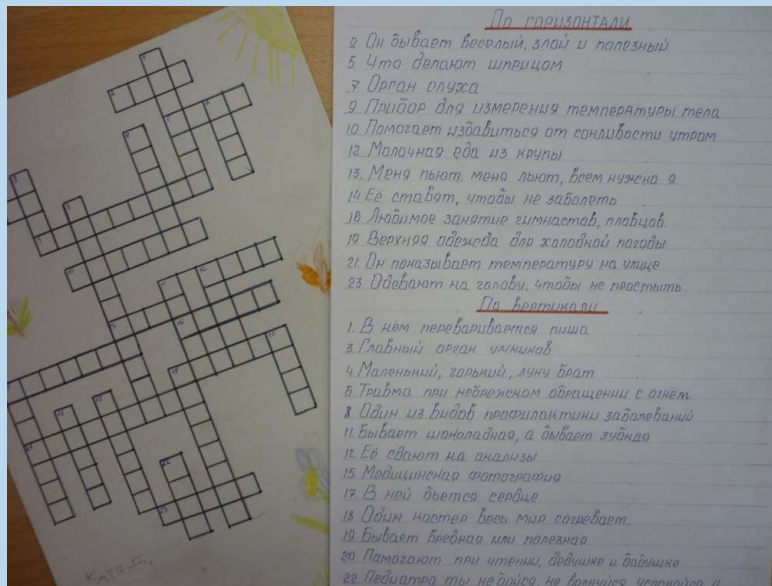 По горизонтали
2. Он бывает веселый, злой и полезный
5. Что делают шприцом
7. Орган слуха
9. Прибор для измерения температуры тела
10. Помогает избавиться от сонливости утром
12. Молочная еда из крупы
13. Меня пьют, меня льют, всем нужна я
14. Её ставят, чтобы не заболеть
18. Любимое занятие гимнастов, пловцов.
19. Верхняя одежда для холодной погоды
21. Он показывает температуру на улице
23. Одевают на голову, чтобы не простыть
По вертикали
1. В нём переваривается пища
3. Главный орган умников
4. Маленький, горький, луку брат
6. Травма при небрежном обращении с огнём
8. Один из видов профилактики заболеваний
11. Бывает шоколадная, а бывает зубная
12. Её сдают на анализы
15. Медицинская фотография
17. В ней бьется сердце
18. Один костер весь мир согревает.
19. Бывает вредная или полезная
20. Помогают при чтении, дедушке и бабушке
22. Педиатра ты не бойся, не волнуйся, успокойся и
Катя